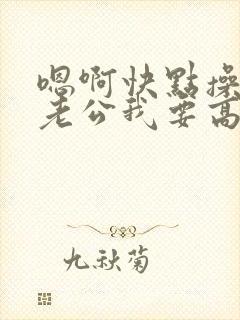 嗯啊快點操
老公我要高
九秋菊